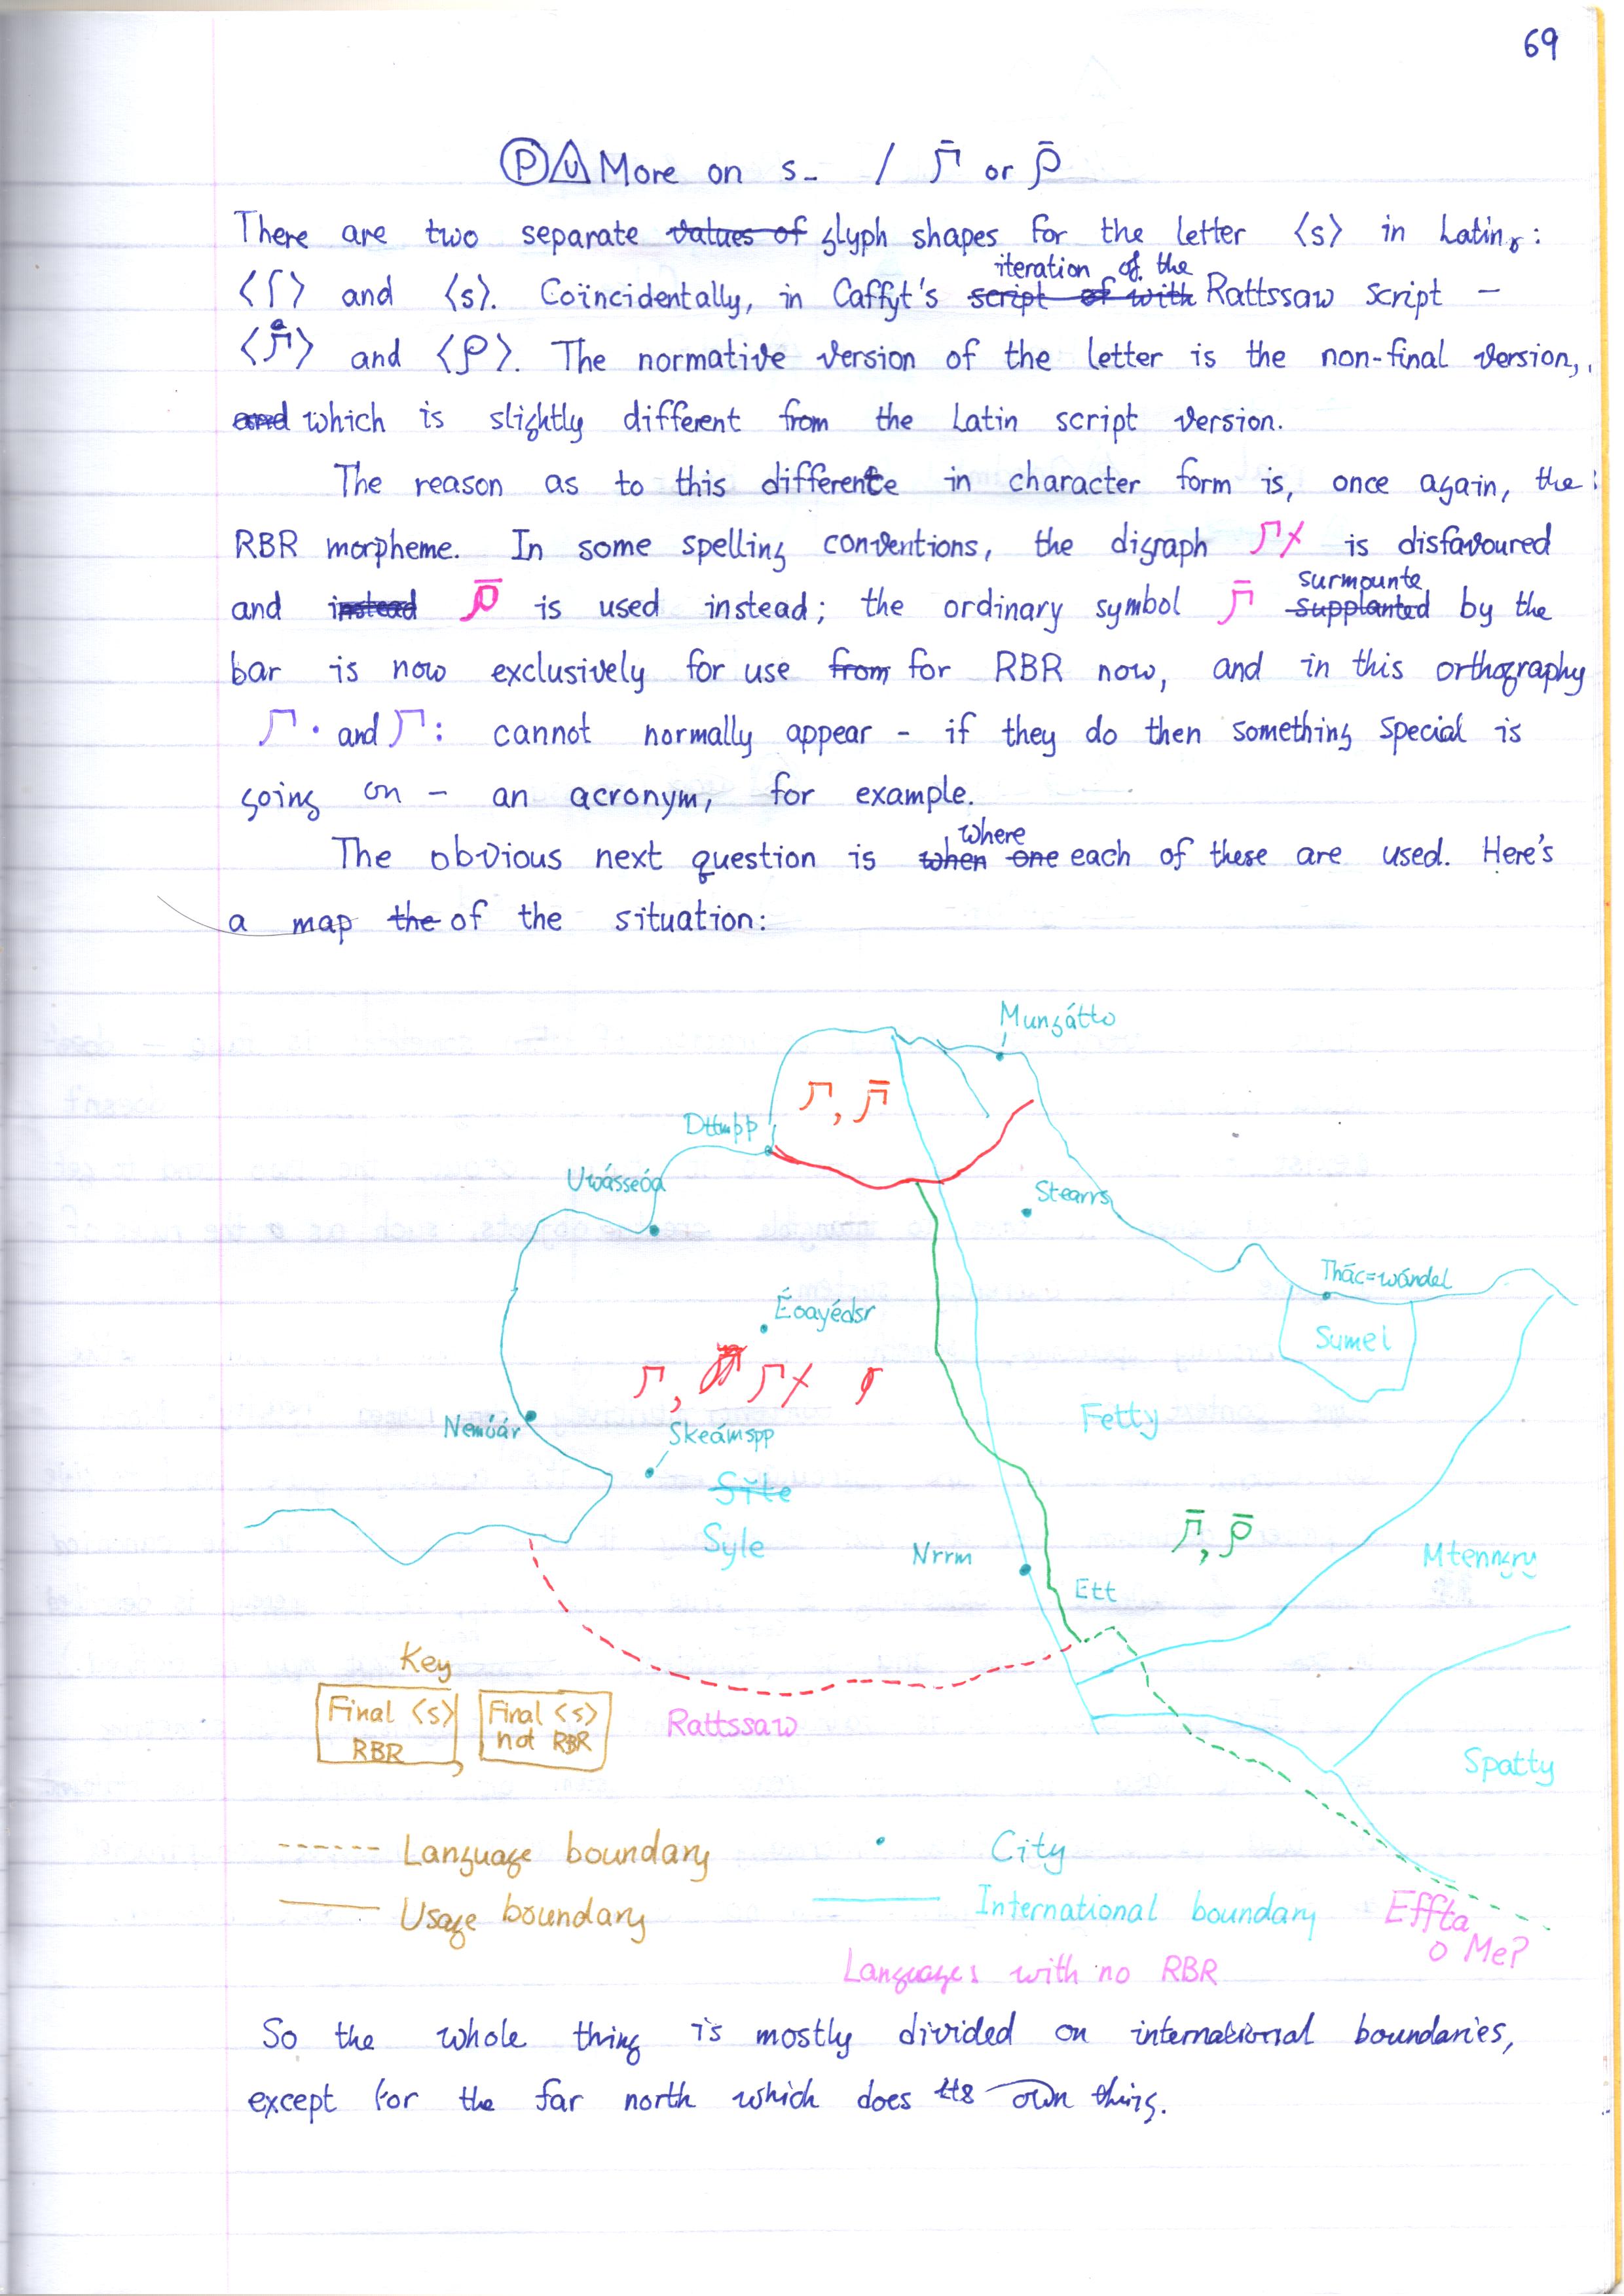 69
Ⓟ More on s- / or
There are two separate values of glyph shapes for the letter ⟨s⟩ in Latin:
iteration of the
⟨ſ⟩ and ⟨s⟩. Coïncidentally, in Caffyt's script of with Rattssaw script –
and . The normative version of the letter is the non-final version,
and which is slightly different from the Latin script version.
The reason as to this difference in character form is, once again, the
RBR morpheme. In some spelling conventions, the digraph is disfavoured
surmounte
and instead is used instead; the ordinary symbol supplanted by the
bar is now exclusively for use from for RBR now, and in this orthography
and cannot normally appear – if they do then something special is
going on – an acronym, for example.
where
The obvious next question is when one each of these are used. Here's
a map the of the situation:
Mungátto
Dttmþþ
Uwásseóa
Stearrs
Thác=wándel
Éoayédsr
Sumei
Fetty
Nemóár
Skeámspp
Site
Syle
Nrrm
Mtenngry
Ett
Key
Final ⟨s⟩ RBR, Final ⟨s⟩ not RBR
Rattssaw
Spatty
Language boundary
City
Usage boundary
International boundary
Effta
o Me?
Languages with no RBR
So the whole thing is mostly divided on international boundaries,
except for the far north which does its own thing.